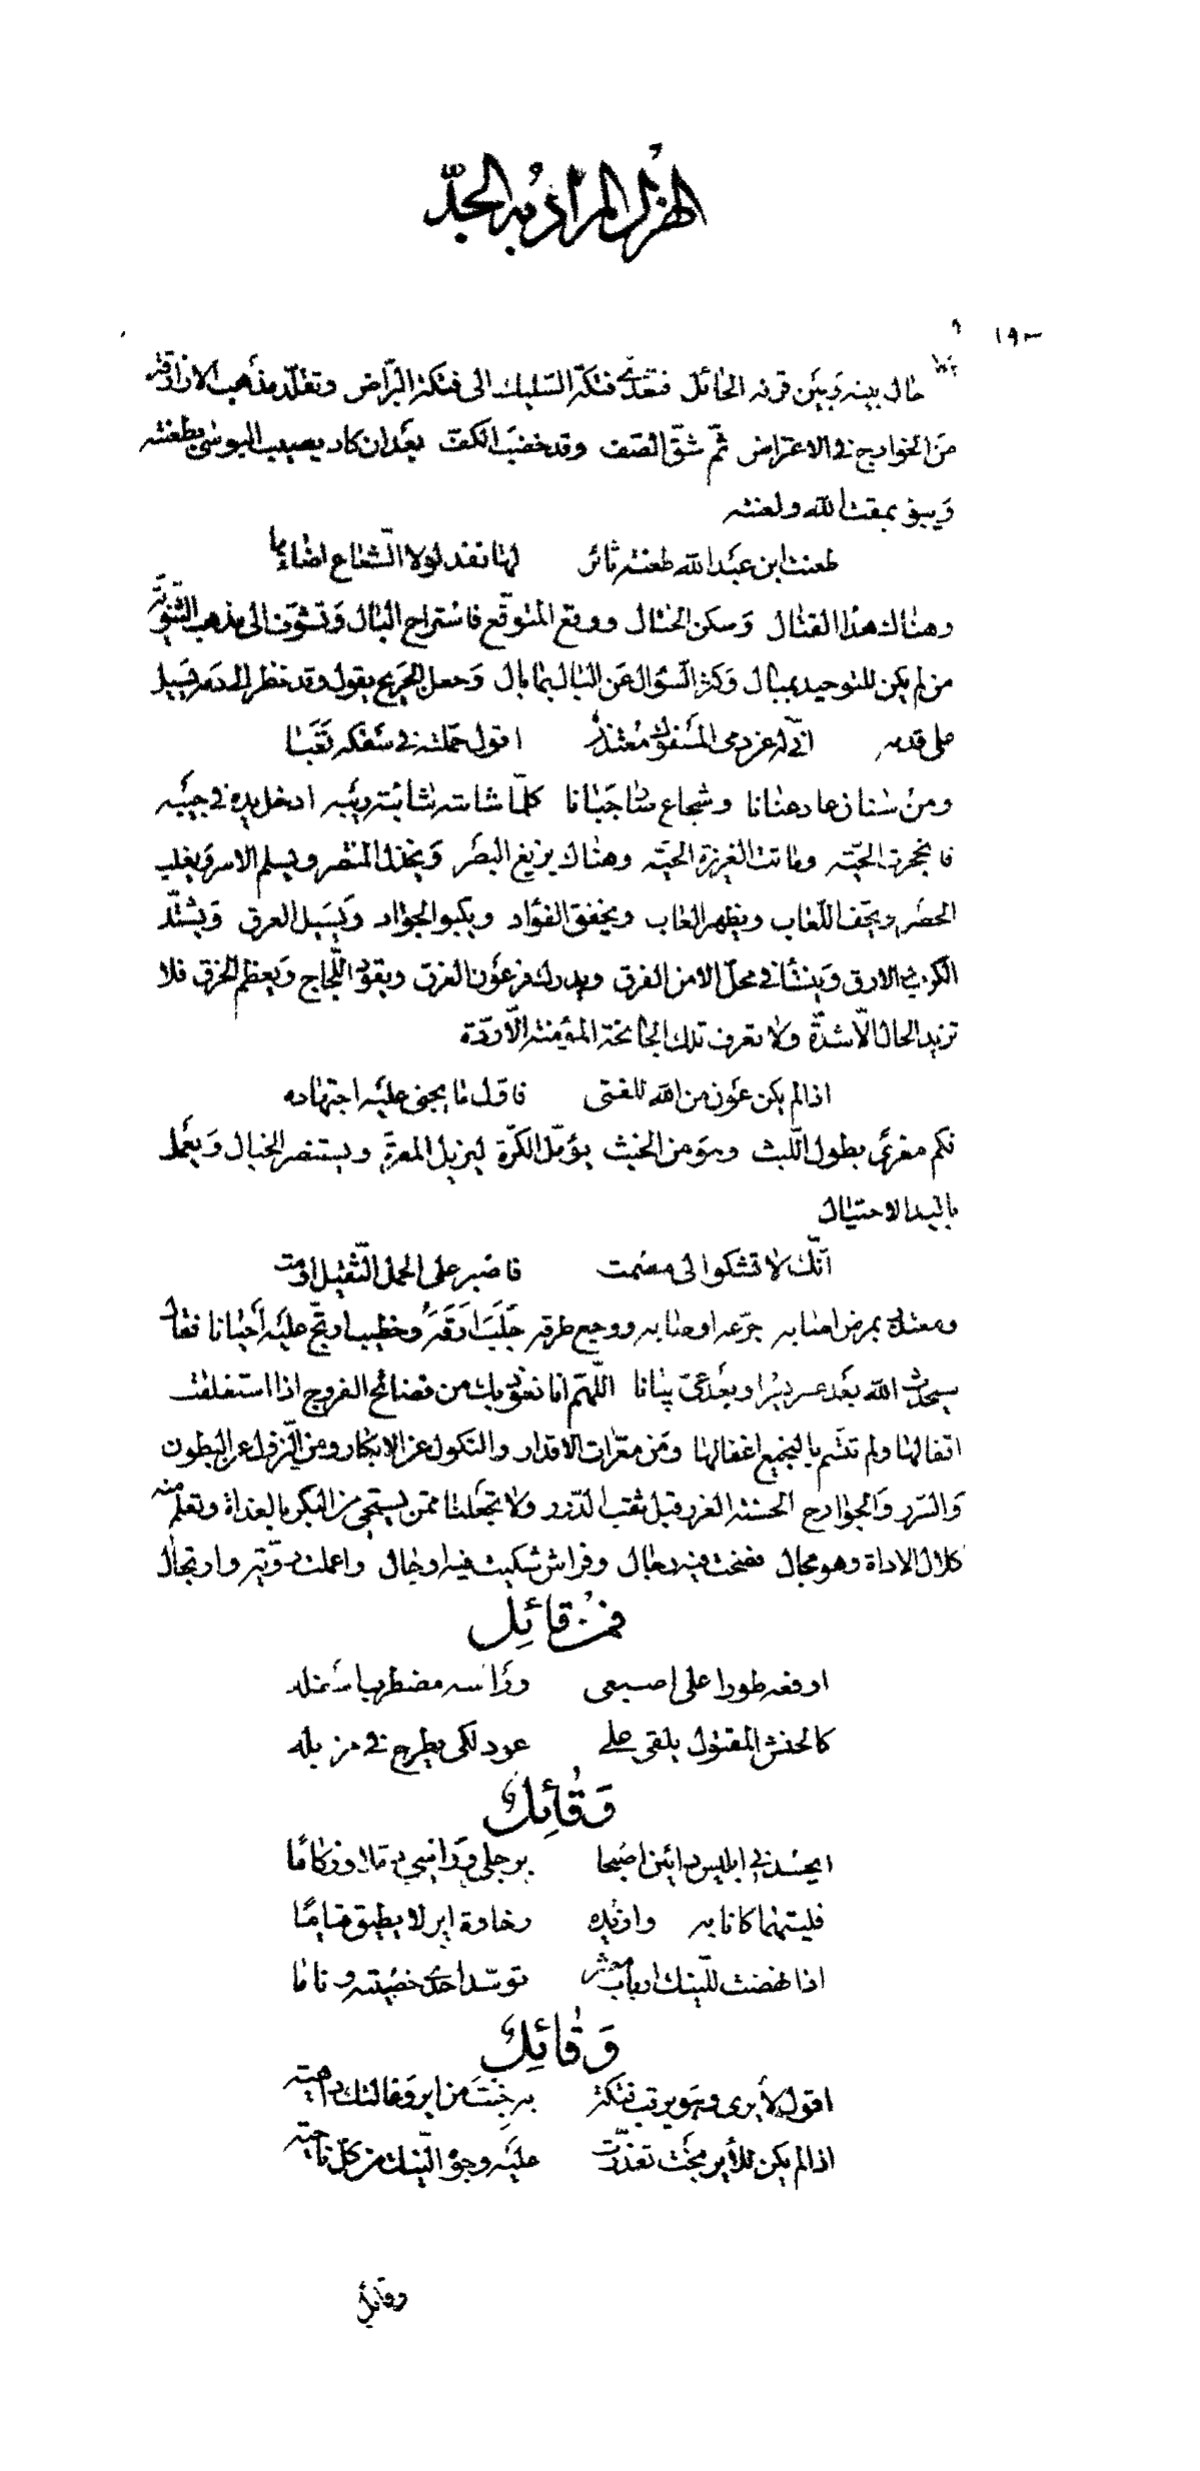 الهزل المراد به الجدّ
١٩٠
حال بينه وبين قرنه الحائل فتعدّى فتكة السّليك الى فتكة البرّاض وتقلّد مذهب الازارقة
من الخوارج فى الاعتراض ثمّ شقّ الصّف وقد خضب الكفّ بعد ان كاد يصيب البوسى بطعنته
ويبوء بمقت الله ولعنته
طعنت ابن عبد الله طعنة ثائر لها نفذ لولا الشّعاع اضاءها
وهناك هدأ القتال وسكن الخبال ووقع المتوقّع فاستراح البال وتشوّف الى مذهب الثّنويّة
من لم يكن للتوحيد بمبال وكثر السّؤال عن البال بما بال وجعل الجريح يقول وقد نظر الى دمه يسيل
على قدمه انّى له عن دمى المسفوك معتذر اقول حمّلته فى سفكه تعبا
ومن سنان عاد عنانا وشجاع صار جبانا كلّما شابته شائبة ريبه ادخل يده فى جيبه
فانحجرت الحيّه وماتت الغريزة الحيّه وهناك يزيغ البصر ويخذل المنتصر ويسلم الاسر ويغلب
الحصر ويجف اللّعاب ويظهر العاب ويخفق الفؤاد ويكبو الجواد ويسيل العرق ويشتدّ
الكرب والارق وينشأ فى محلّ الامن الفرق ويدرك فرعون الغرق ويقوى اللّجاج ويعظم الخرق فلا
تزيد الحال الّا شدّة ولا تعرف تلك الجائحة المؤمنة الّا ردّة
اذا لم يكن عون من الله للفتى فاوّل ما يجنى عليه اجتهاده
فكم مغرى بطول اللّبث وهو من الخبث يؤمّل الكرّة ليزيل المعرّة ويستنصر الخيال ويعمل
باليد الاحتيال
انّك لا تشكوا الى مصمت فاصبر على الحمل الثّقيل او مت
ومعتذر بمرض اصابه جرّعه اوصابه ووجع طرقه جلب ارقه وخطيب ارتجّ عليه احيانا فقال
سيحدث الله بعد عسر يسرا وبعد عىّ بيانا اللّهمّ انا نعوذ بك من فضائح الفروج اذا استغلقت
اقفالها ولم تتّسم بالنجيع اغفالها ومن معرّات الاقدار والنكول عن الابكار ومن النّزول عن البطون
والسّرر والجوارح الحسنة الغرر قبل ثقب الدّرر ولا تجعلنا ممّن يستحى من البكر بالغداة وتعلم منه
كلال الاداة وهو مجال فضحت فيه رجال وفراش شكيت فيه اوجال واعملت رويّة وارتجال
فمن قائل
ارفعه طورا على اصبعى ورأسه مضطرب اسفله
كالحنش المقتول يلقى على عود لكى يطرح فى مزبله
وقائل
ايحسدنى ابليس دائين اصبحا برجلى ورأسى دمّلا وزكاما
فليتهما كانا به وازيده رخاوة اير لا يطيق قياما
اذا نهضت للنّيك ارباب معشر توسّد احدى خصيتيه وناما
وقائل
اقول لأيرى وهو يرقب فتكة به خبت من اير وغالتك داهيه
اذا لم يكن للأير بخت تعذّرت عليه وجوه النّيك من كلّ ناحيه
وقائل